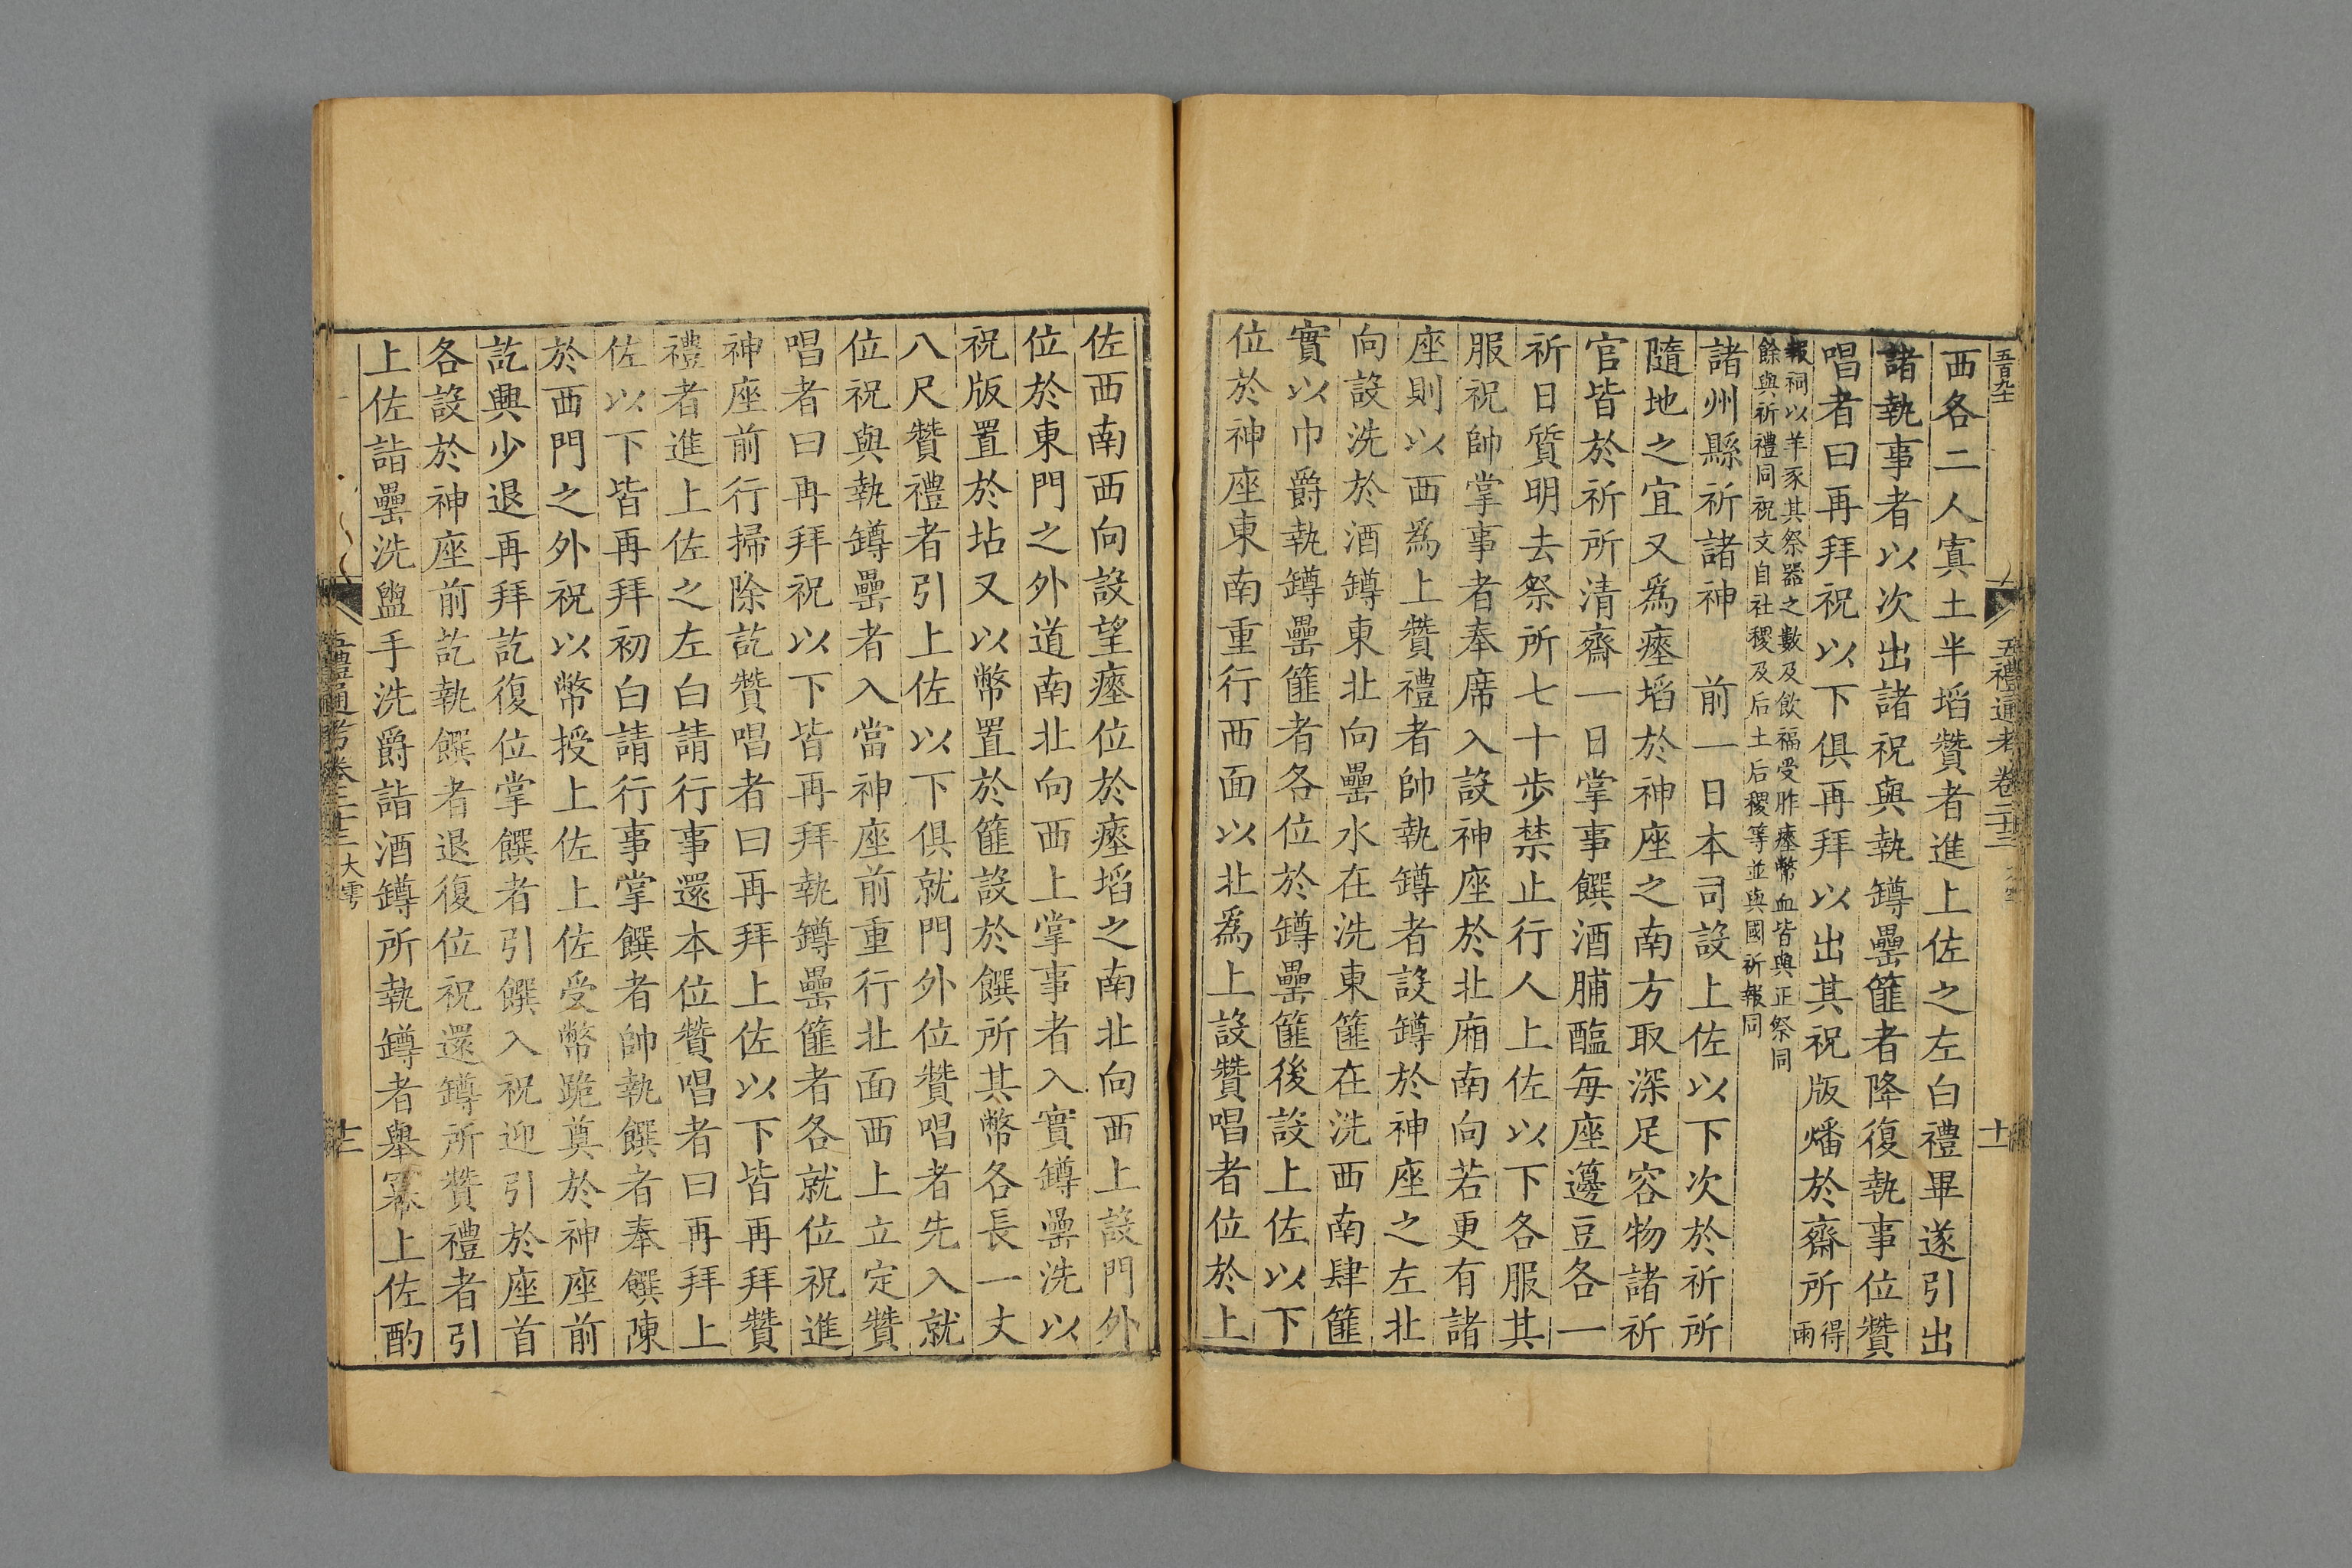 五禮通考卷二十二
十
西各二人寘土半埳贊者進上佐之左白禮畢遂引出
諸執事者以次出諸祝與執罇罍篚者降復執事位贊
唱者曰再拜祝以下俱再拜以出其祝版燔於齋所得雨
報祠以羊豕其祭器之數及飲福受胙瘞幣血皆與正祭同
餘與祈禮同祝文自社稷及后土后稷等並與國祈報同
諸州縣祈諸神　前一日本司設上佐以下次於祈所
隨地之宜又爲瘞埳於神座之南方取深足容物諸祈
官皆於祈所清齋一日掌事饌酒脯醢每座籩豆各一
祈日質明去祭所七十步禁止行人上佐以下各服其
服祝帥掌事者奉席入設神座於北廂南向若更有諸
座則以西爲上贊禮者帥執罇者設罇於神座之左北
向設洗於酒罇東北向罍水在洗東篚在洗西南肆篚
實以巾爵執罇罍篚者各位於罇罍篚後設上佐以下
位於神座東南重行西面以北爲上設贊唱者位於上
佐西南西向設望瘞位於瘞埳之南北向西上設門外
位於東門之外道南北向西上掌事者入實罇罍洗以
祝版置於坫又以幣置於篚設於饌所其幣各長一丈
八尺贊禮者引上佐以下俱就門外位贊唱者先入就
位祝與執罇罍者入當神座前重行北面西上立定贊
唱者曰再拜祝以下皆再拜執罇罍篚者各就位祝進
神座前行掃除訖贊唱者曰再拜上佐以下皆再拜贊
禮者進上佐之左白請行事還本位贊唱者曰再拜上
佐以下皆再拜初白請行事掌饌者帥執饌者奉饌陳
於西門之外祝以幣授上佐上佐受幣跪奠於神座前
訖興少退再拜訖復位掌饌者引饌入祝迎引於座首
各設於神座前訖執饌者退復位祝還罇所贊禮者引
上佐詣罍洗盥手洗爵詣酒罇所執罇者舉冪上佐酌
五禮通考卷二十二 大雩
十一